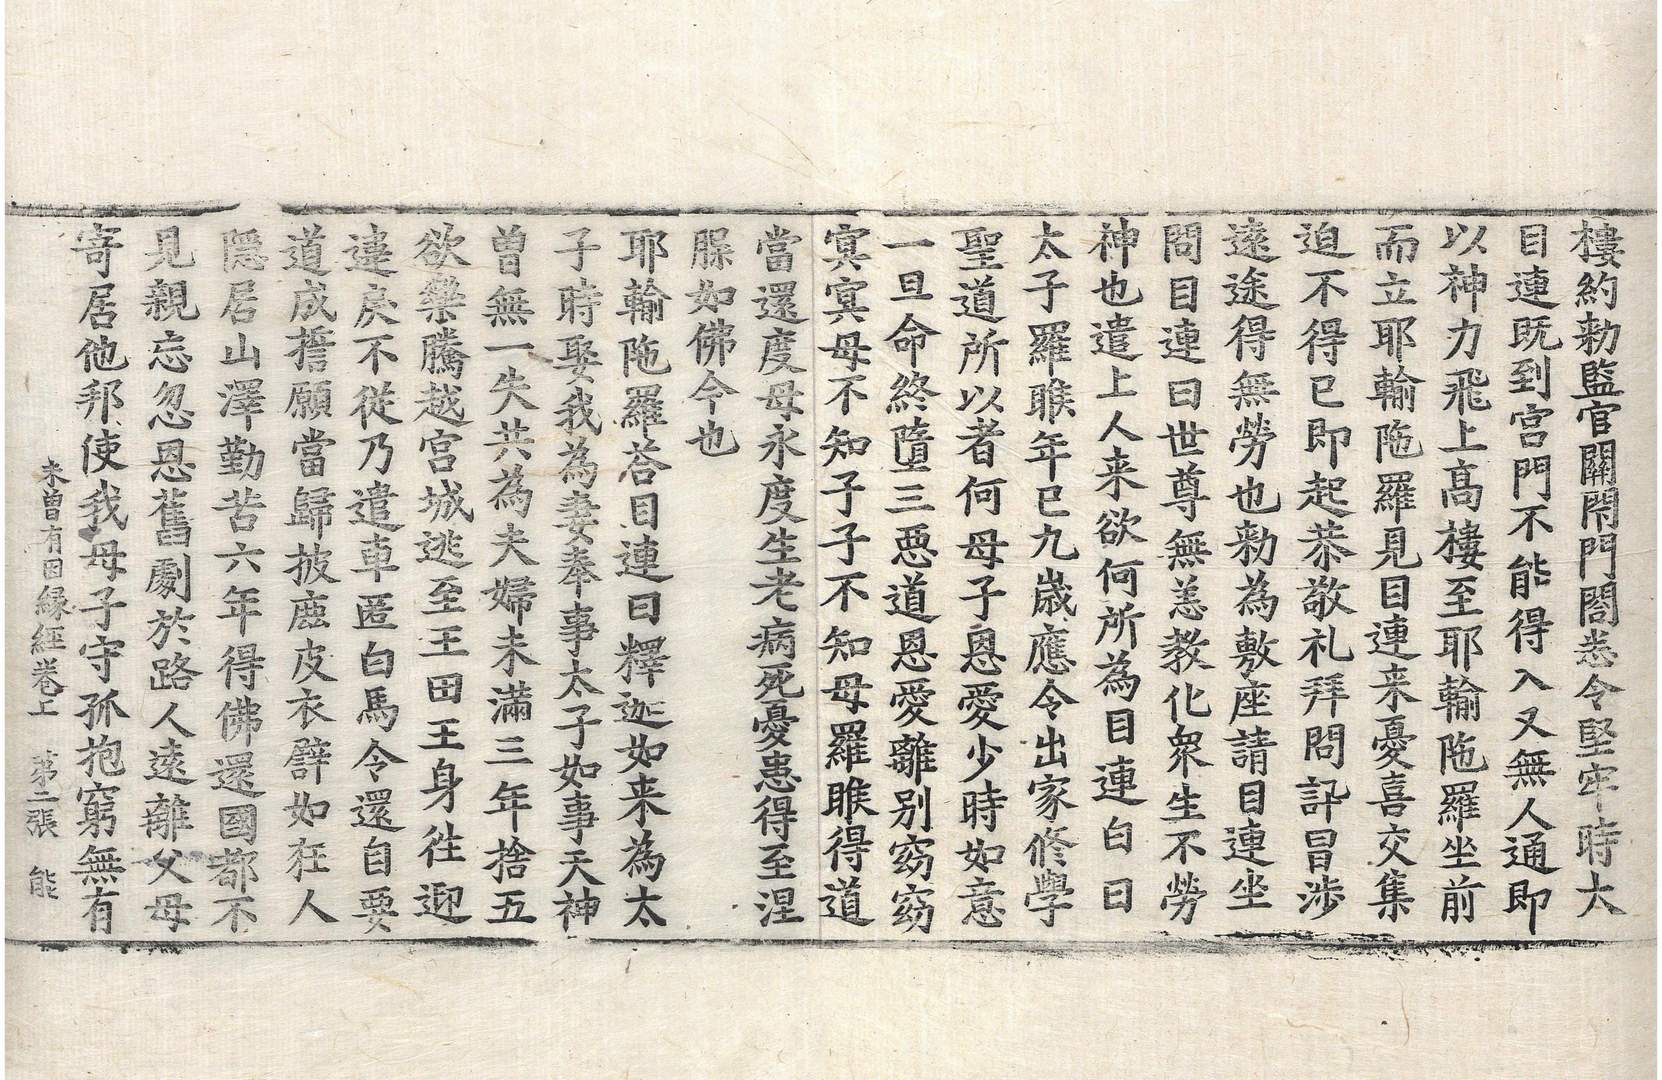 樓約勑監官關閉門閤悉令堅牢時大
目連既到宮門不能得入又無人通即
以神力飛上高樓至耶輸陁羅坐前
而立耶輸陁羅見目連来憂喜交集
迫不得已即起恭敬礼拜問訊冒涉
遠途得無勞也勑為敷座請目連坐
問目連曰世尊無恙教化衆生不勞
神也遣上人来欲何所為目連白曰
太子羅睺年已九歲應令出家修學
聖道所以者何母子恩愛少時如意
一旦命終墮三惡道恩愛離別窈窈
冥冥母不知子子不知母羅睺得道
當還度母永度生老病死憂患得至涅
脲如佛今也
耶輸陁羅荅目連曰釋迦如来為太
子時娶我為妻奉事太子如事天神
曾無一失共為夫婦未滿三年捨五
欲樂騰越宮城逃至王田王身往迎
違戾不從乃遣車匿白馬令還自要
道成擔願當歸披鹿皮衣譬如狂人
隱居山澤勤苦六年得佛還國都不
見親忘忽恩舊劇於路人遠離父母
寄居他邦使我母子守孤抱窮無有
未曾有因緣經卷上 第二張 能